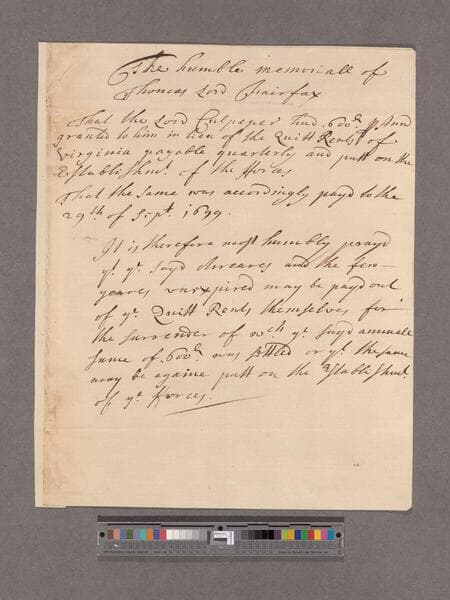 The humble memoriall of
Thomas Lord Fairfax
That the Lord Culpaper had 600ˡ p Ann
granted to him in lieu of the Quitt Rents of
Virginia payable quarterly and putt on the
Establishmt. of the Forces
That the same was accordingly payd to the
29th of Sept. 1699.
It is therefore most humbly prayd
yt. ye. sayd Arreares and the few
yeares unexpired may be payd out
of ye. Quitt Rents themselves for
the surrender of wch ye. sayd annuall
sume of 600ˡ was settled or yt. the same
may be againe putt on the Establishmt.
of ye. Forces.